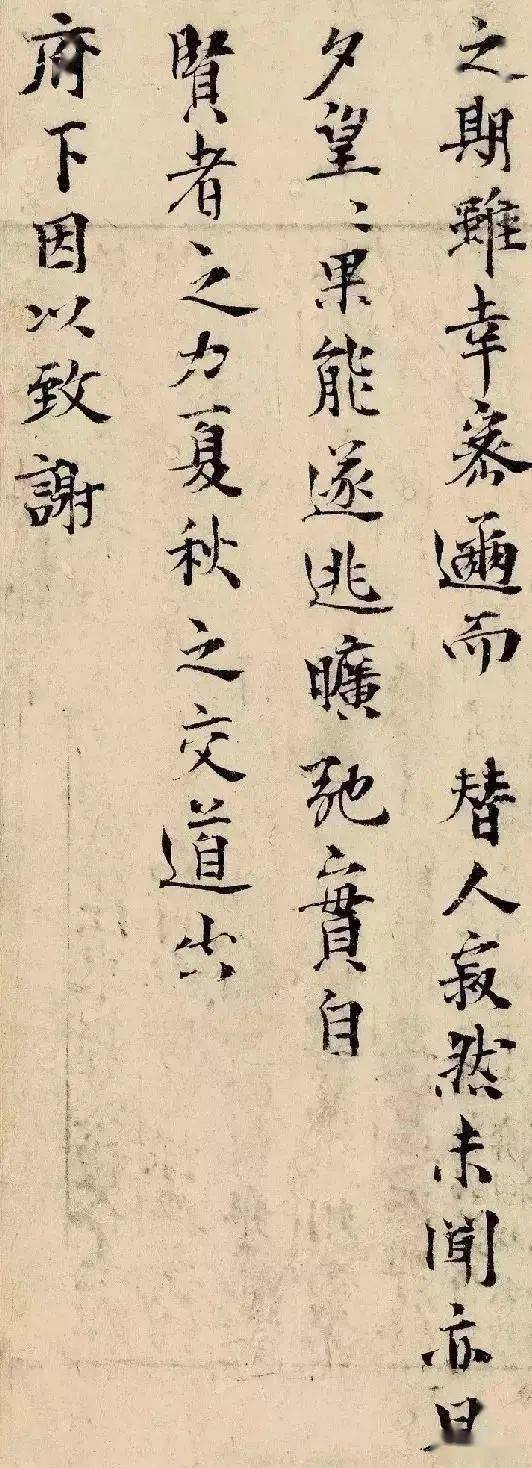 之期雖幸密邇而 替人寂然未聞亦旦
夕望〻果能遂逃曠弛實自
賢者之力夏秋之交道出
府下因以致謝